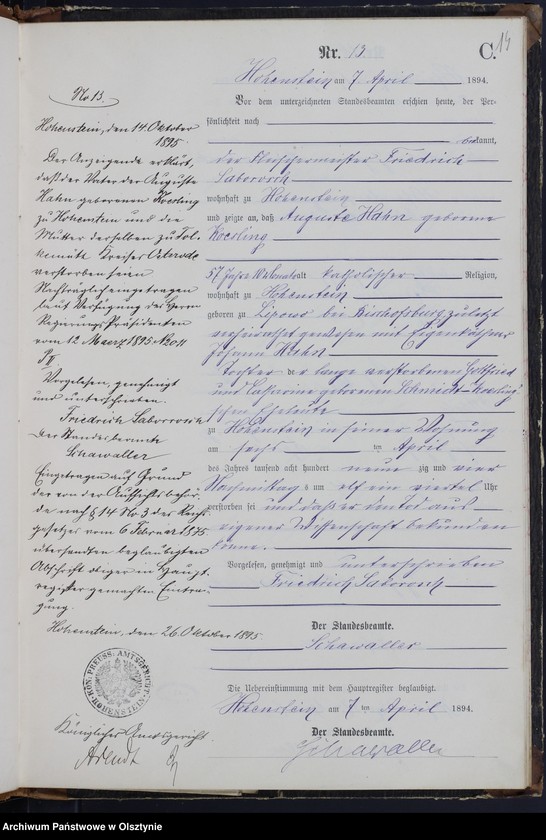 Nr. 13.
C.
14
Hohenstein am 7 April 1894.
Vor dem unterzeichneten Standesbeamten erschien heute, der Per-
sönlichkeit nach
bekannt,
der Friedrich
Saborosch
wohnhaft zu Hohenstein
und zeigte an, daß Auguste Hahn geborene
Koesling
57 Jahre alt, katholischer Religion,
wohnhaft zu Hohenstein
geboren zu Lipowo bei Bischofsburg zuletzt
verheirathet gewesen mit Eigenkäthner
Johann Hahn
Tochter der lange verstorbenen Gottfried
und Catharine geborenen Schmidt-Koesling-
schen Eheleute
zu Hohenstein in seiner Wohnung
am sechs ten April
des Jahres tausend acht hundert neun zig und vier
Nachmittags um elf ein viertel Uhr
verstorben sei und daß er den Tod aus
eigener Wissenschaft bekunden
könne.
Vorgelesen, genehmigt und unterschrieben
Friedrich Saborosch
Der Standesbeamte.
Schawaller
Die Uebereinstimmung mit dem Hauptregister beglaubigt.
Hohenstein am 7 ten April 1894.
Der Standesbeamte.
Schawaller
No 13.
Hohenstein, den 14. Oktober
1895.
Der Anzeigende erklärt,
daß der Vater der Auguste
Hahn geborenen Koesling
zu Hohenstein und die
Mutter derselben zu
Kreises Osterode
verstorben seien
Nachträglich eingetragen
laut Verfügung des Herrn
Regierungs Präsidenten
vom 12 Maerz 1895 No 011
Vorgelesen, genehmigt
und unterschrieben.
Friedrich Saborosch
Der Standesbeamte
Schawaller
Eingetragen auf Grund
der von der Aufsichtsbehör-
de nach § 14 Nr. 3 des Reichs
gesetzes vom 6 Februar 1875
übersandten beglaubigten
Abschrift obiger im Haupt-
register gemachten Eintra-
gung.
Hohenstein, den 26. Oktober 1895.
KÖN. PREUSS. AMTSGERICHT
HOHENSTEIN
Königliches Amtsgericht
Arendt
Archiwum Państwowe w Olsztynie